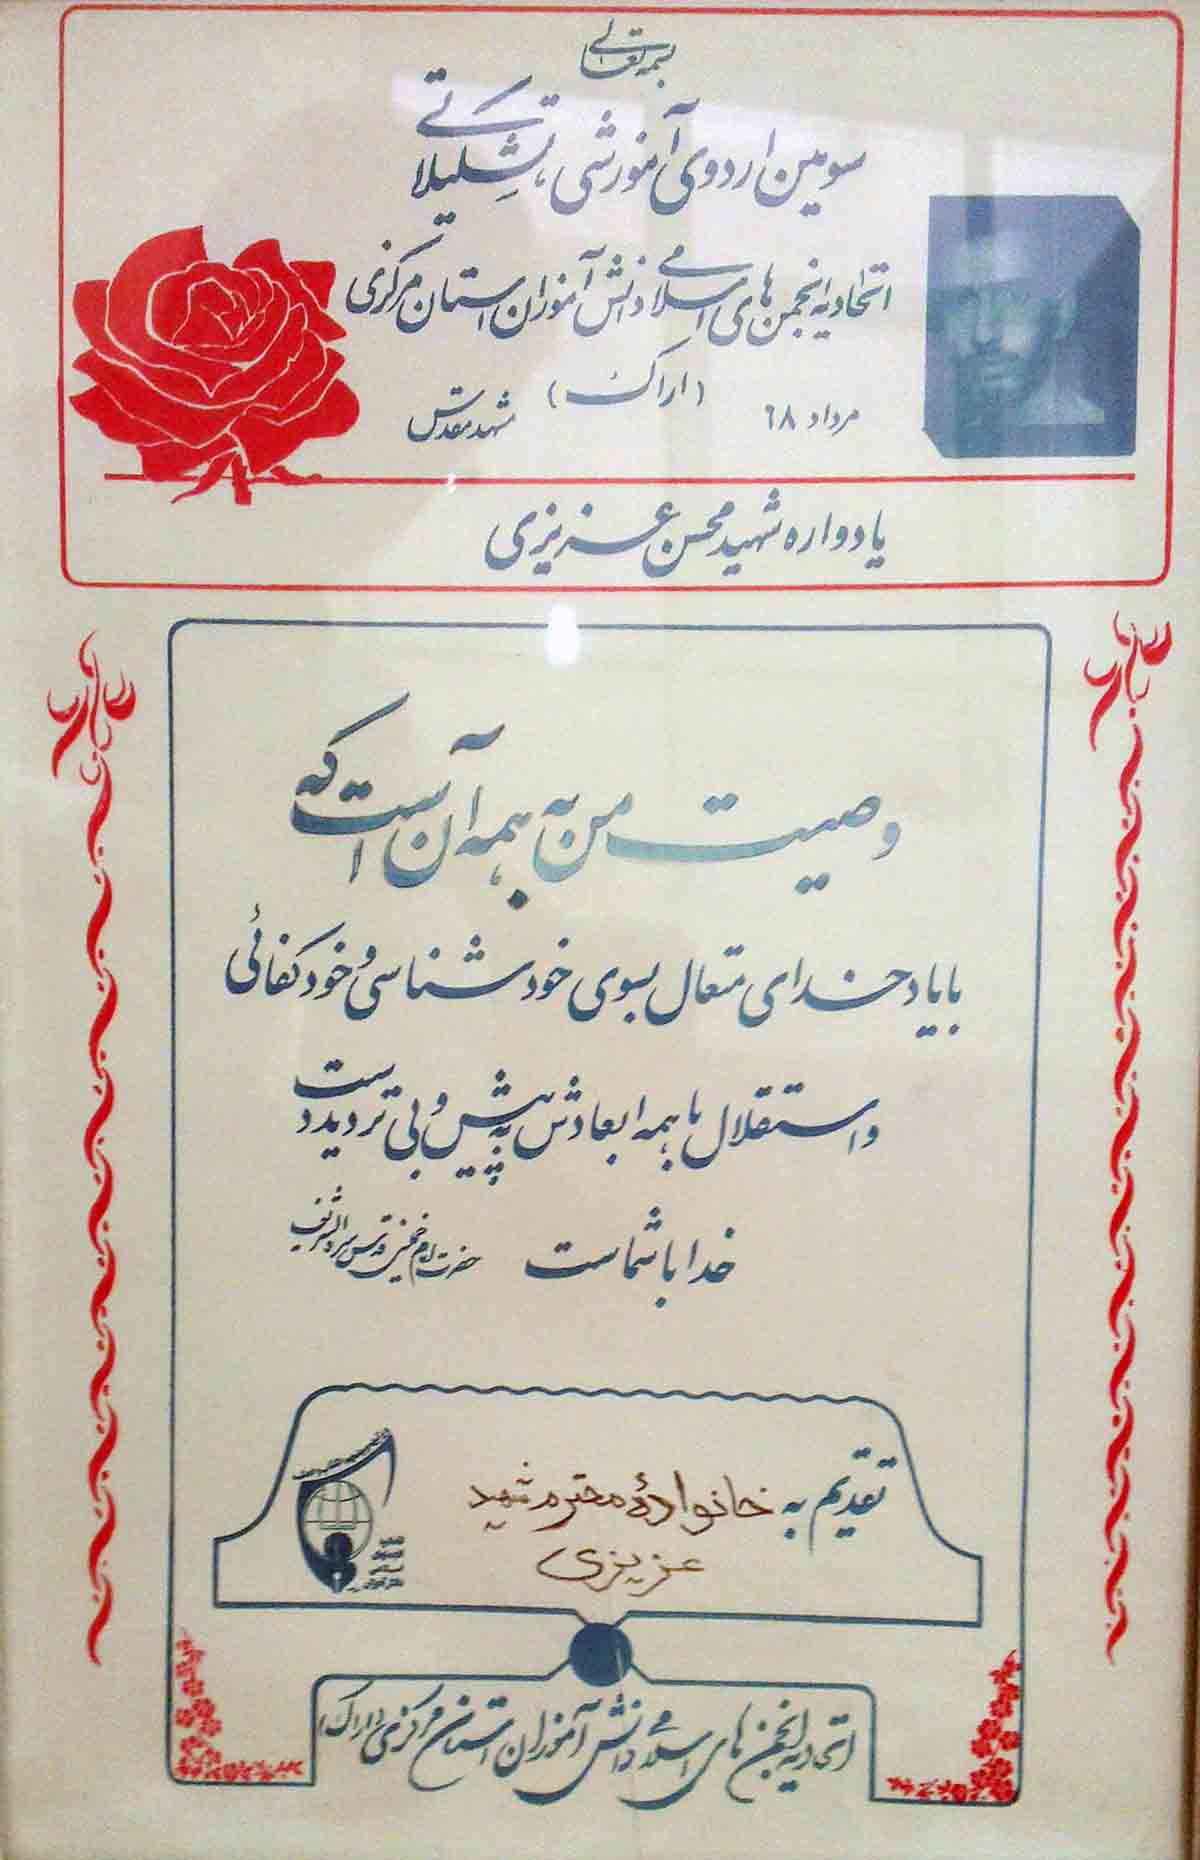 بسمه تعالی
سومین اردوی آموزشی، تشکیلاتی
اتحادیه انجمن های اسلامی دانش آموران استان مرکزی
(اراک)
مرداد ۶۸
مشهد مقدس
یادواره شهید محسن عزیزی
وصیت من به همه آن است که
با یاد خدای متعال بسوی خودشناسی و خودکفائی
و استقلال با همه ابعادش به پیش و بی تردید دست
خدا با شماست
حضرت امام خمینی قدس سره الشریف
تقدیم به خانوادهٔ محترم شهید
عزیزی
اتحادیه انجمن های اسلامی دانش آموزان استان مرکزی (اراک)